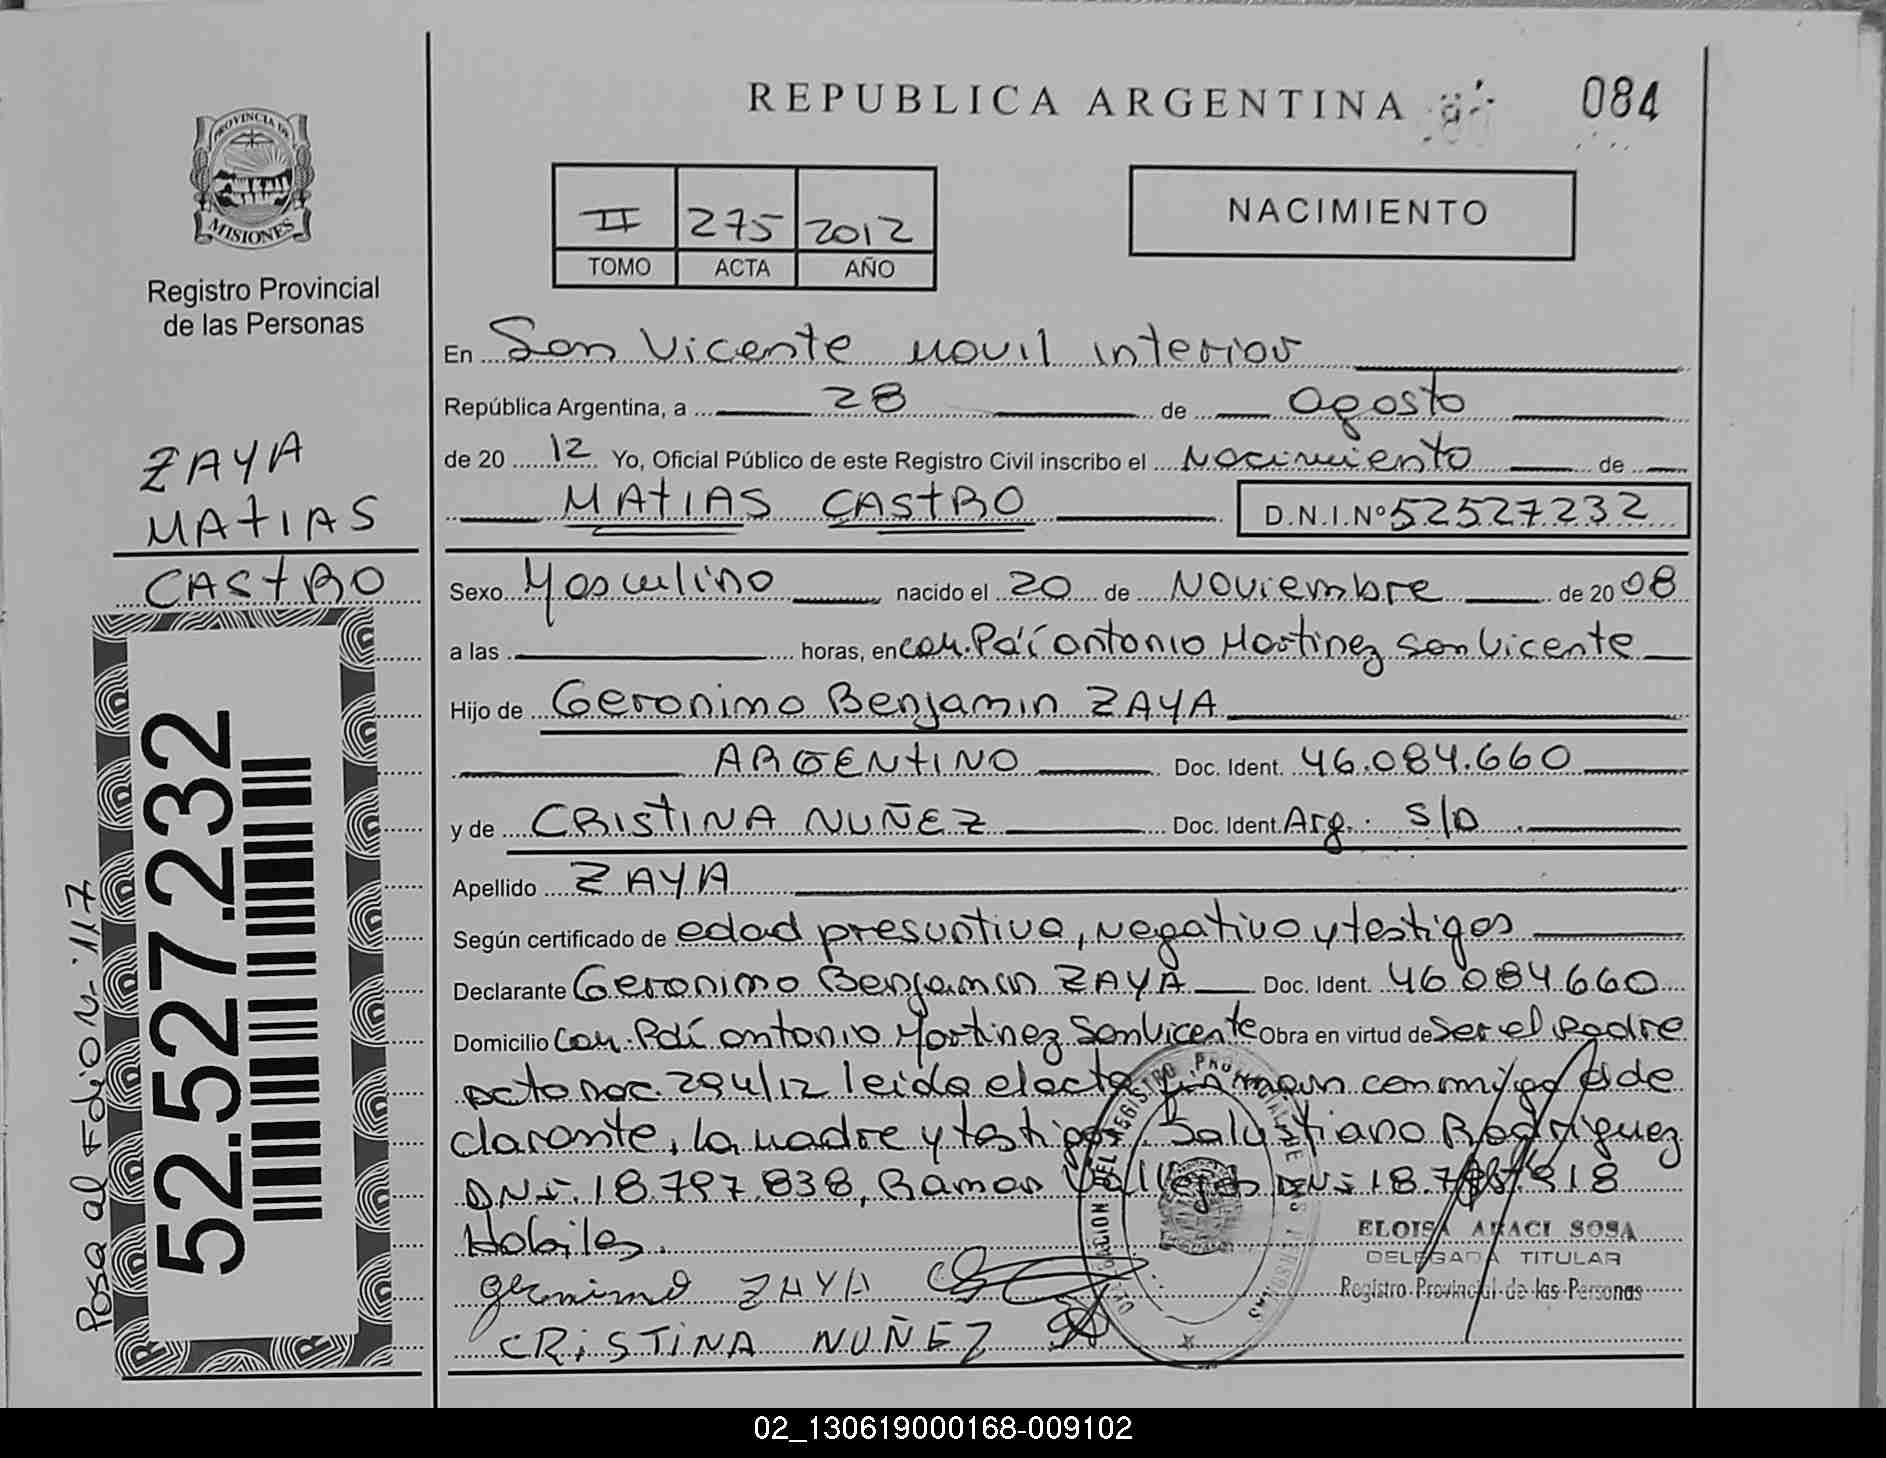 REPUBLICA ARGENTINA
084
PROVINCIA DE
MISIONES
Registro Provincial
de las Personas
II 275 2012
TOMO ACTA AÑO
NACIMIENTO
En San Vicente movil interior
República Argentina, a 28 de agosto
de 20 12 Yo, Oficial Público de este Registro Civil inscribo el Nacimiento de
MATIAS CASTRO D.N.I.Nº 52527232
ZAYA
MATIAS
CASTRO
Sexo Masculino nacido el 20 de Noviembre de 20 08
a las horas, en com. Paí antonio Martinez San Vicente
Hijo de Geronimo Benjamin ZAYA
ARGENTINO Doc. Ident. 46.084.660
y de CRISTINA NUÑEZ Doc. Ident. Arg. S/D
Apellido ZAYA
Según certificado de edad presuntiva, negativo y testigos
Declarante Geronimo Benjamin ZAYA Doc. Ident. 46 084 660
Domicilio com. Paí antonio Martinez San Vicente Obra en virtud de ser el padre
acta nac. 294/12 leida el acta firman conmigo el de
clarante, la madre y testigos Salustiano Rodriguez
DNI. 18.797.838, Ramon DNI 18.
Habiles.
geronimo ZAYA
CRISTINA NUÑEZ
ELOISA ARACI SOSA
DELEGADA TITULAR
Registro Provincial de las Personas
52.527.232
Pasa al Folio N. 117
02_130619000168-009102